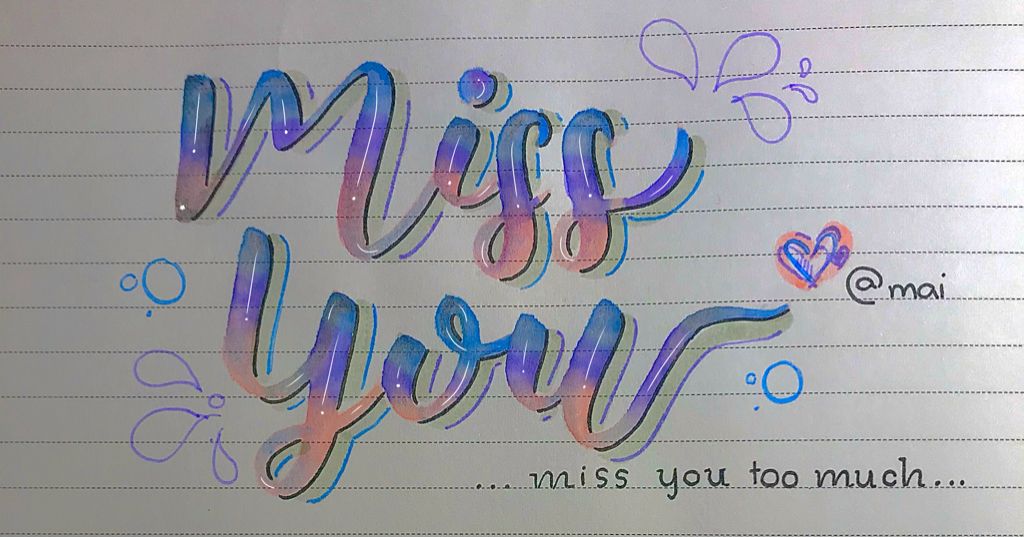 Miss
You
@mai
... miss you too much...